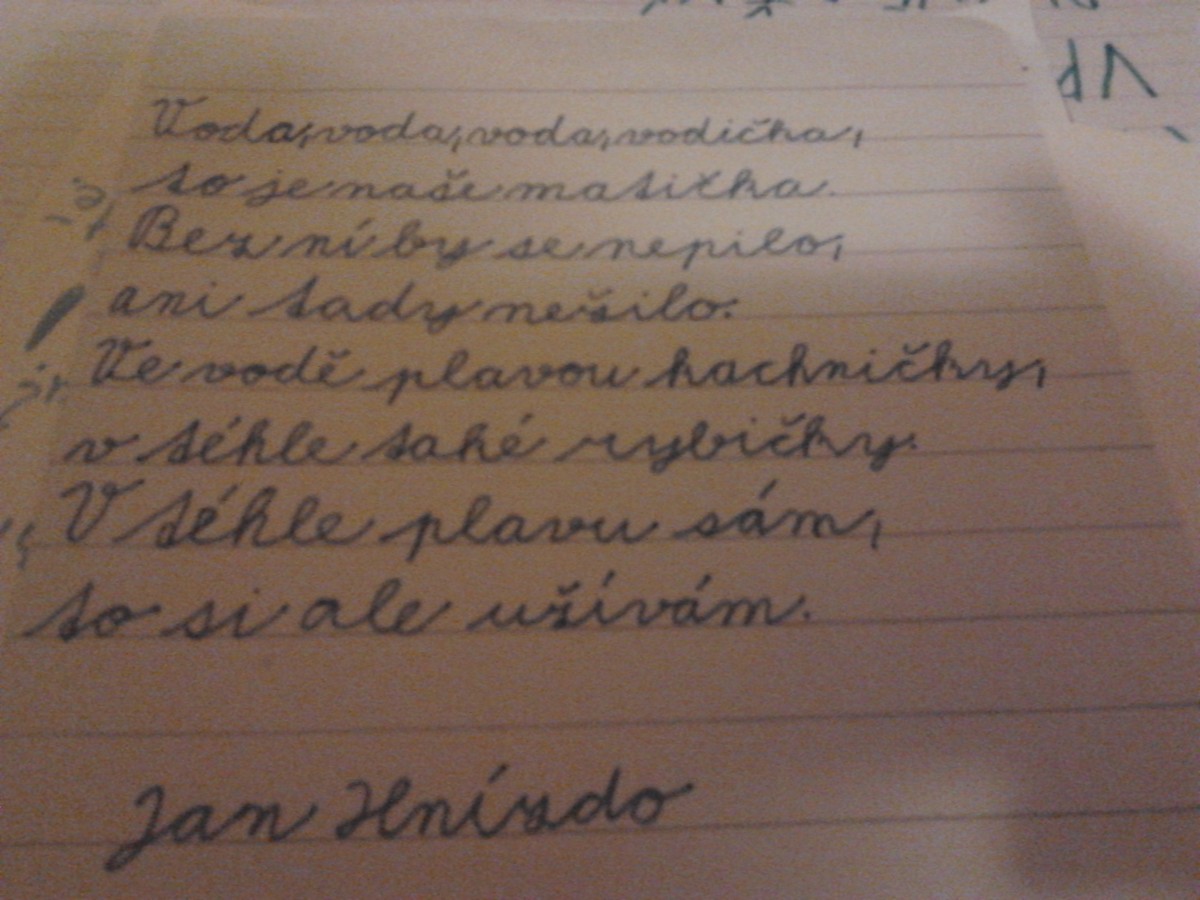 Voda, voda, voda, vodička,
to je naše matička.
Bez ní by se nepilo,
ani tady nežilo.
Ve vodě plavou kachničky,
v téhle také rybičky.
V téhle plavu sám,
to si ale užívám.
Jan Hnízdo